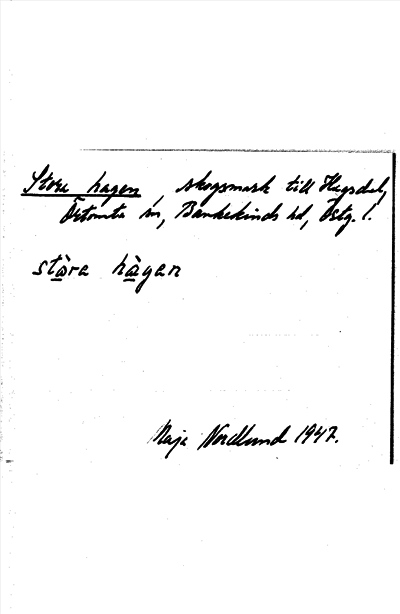 Store hagen, skogsmark till Hegsdal,
Örtomta sn, Bankekinds hd, Östg. l.
stòra hàgen
Maja Nordlund 1947.